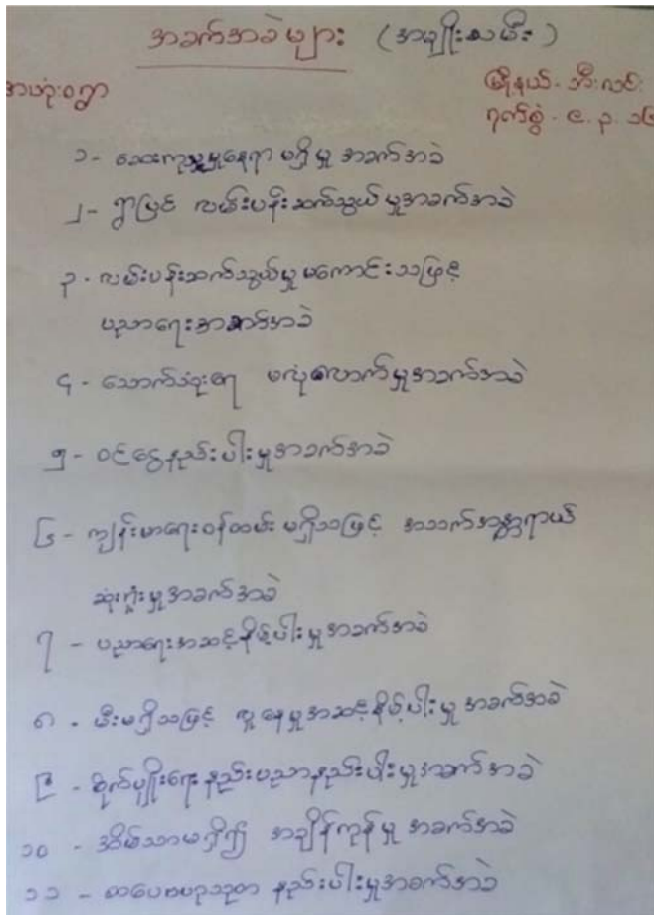 အခက်အခဲများ (အမျိုးသမီး)
မြို့နယ် - ဘီးလင်း
ရက်စွဲ - ၉. ၃. ၁၆
၁ - ဆေးကုသမှုနေရာ မရှိမှု အခက်အခဲ
၂ - ရွာပြင် လမ်းပန်းဆက်သွယ်မှုအခက်အခဲ
၃ - လမ်းပန်းဆက်သွယ်မှု မကောင်းသဖြင့်
ပညာရေးအခက်အခဲ
၄ - သောက်သုံးရေ မလုံလောက်မှုအခက်အခဲ
၅ - ဝင်ငွေနည်းပါးမှုအခက်အခဲ
၆ - ကျန်းမာရေးဝန်ထမ်း မရှိသဖြင့် အသက်အန္တရာယ်
ဆုံးရှုံးမှုအခက်အခဲ
၇ - ပညာရေးအဆင့်နိမ့်ပါးမှုအခက်အခဲ
၈ - မီးမရှိသဖြင့် လူနေမှုအဆင့်နိမ့်ပါးမှု အခက်အခဲ
၉ - စိုက်ပျိုးရေးနည်းပညာနည်းပါးမှုအခက်အခဲ
၁၀ - အိမ်သာမရှိ၍ အချိန်ကုန်မှု အခက်အခဲ
၁၁ - စာပေဗဟုသုတ နည်းပါးမှုအခက်အခဲ